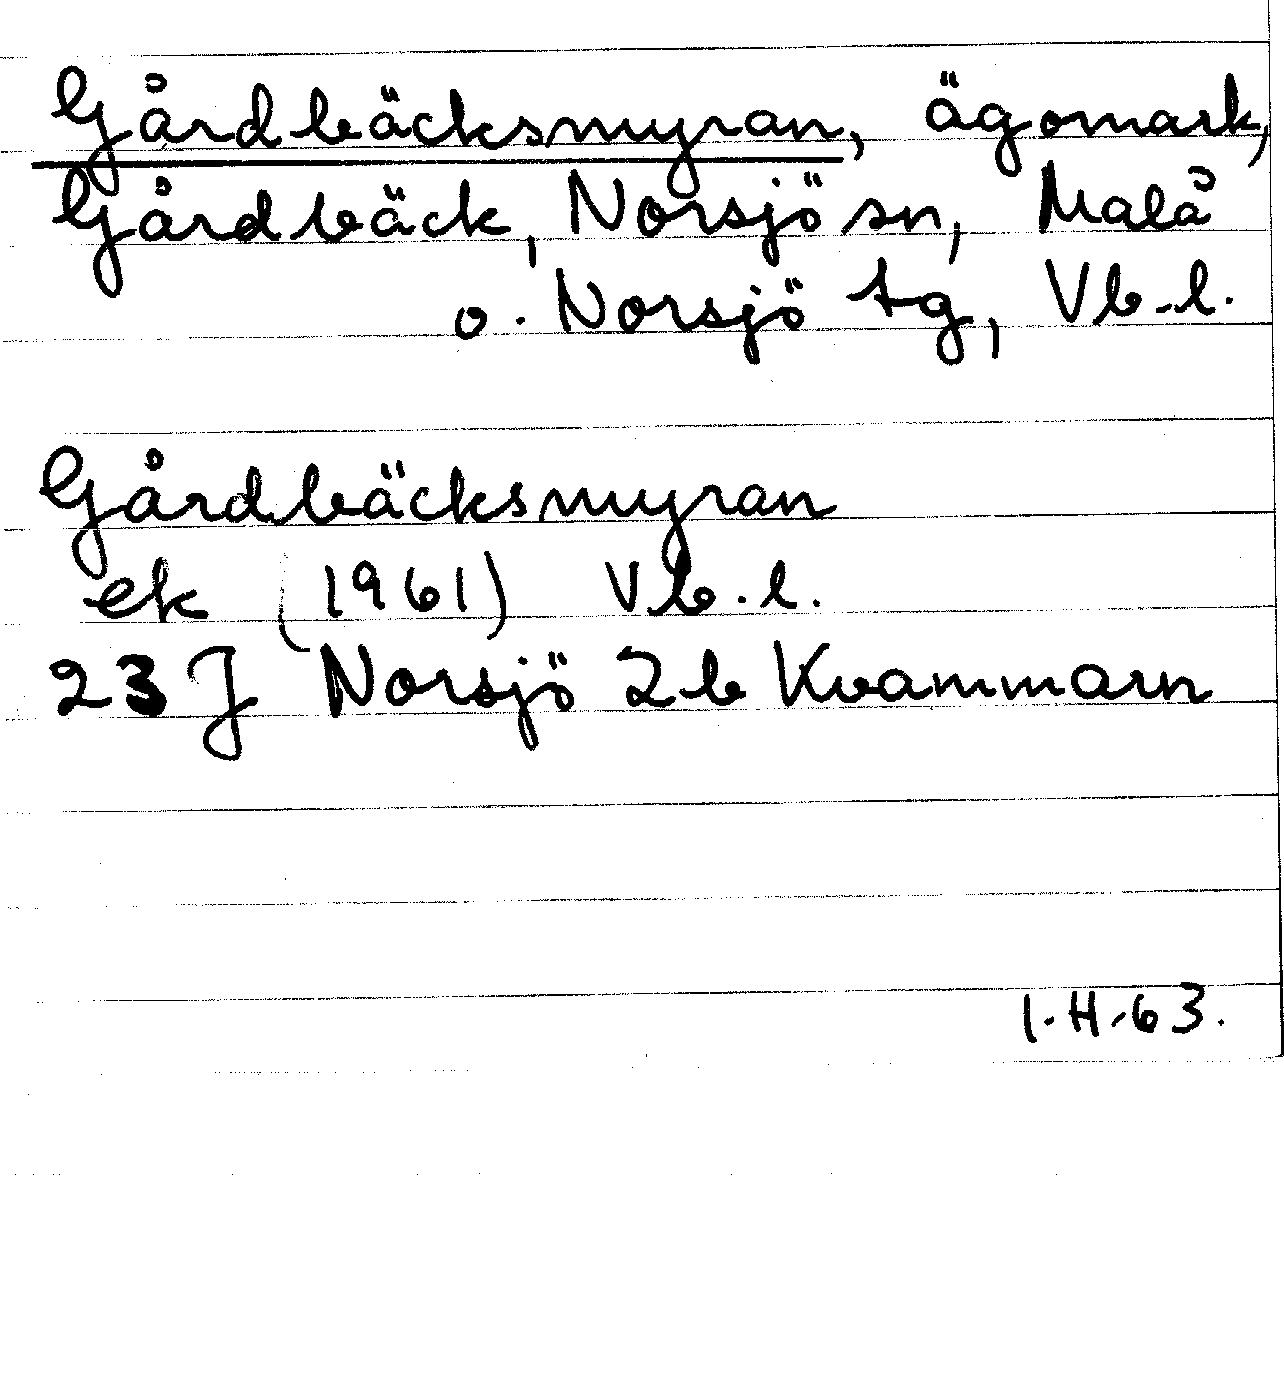 Gårdbäcksmyran, ägomark,
Gårdbäck, Norsjö sn, Malå
o. Norsjö tg, Vb.l.
Gårdbäcksmyran
ek (1961) Vb.l.
23 J Norsjö 2b Kvammarn
1.H.63.